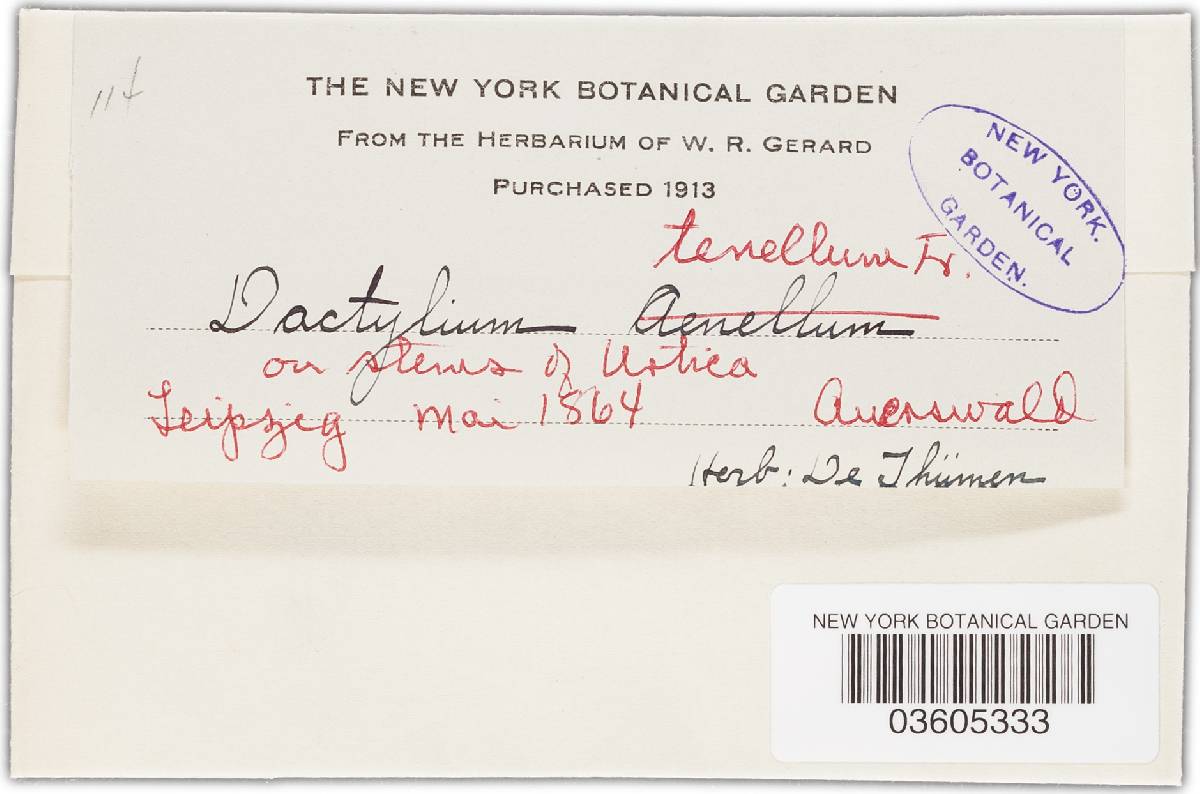 114
THE NEW YORK BOTANICAL GARDEN
FROM THE HERBARIUM OF W. R. GERARD
PURCHASED 1913
NEW YORK.
BOTANICAL
GARDEN.
tenellum Fr.
Dactylium Aenellum
on stems of Urtica
Leipzig Mai 1864 Auerswald
Herb: De Thümen
NEW YORK BOTANICAL GARDEN
03605333